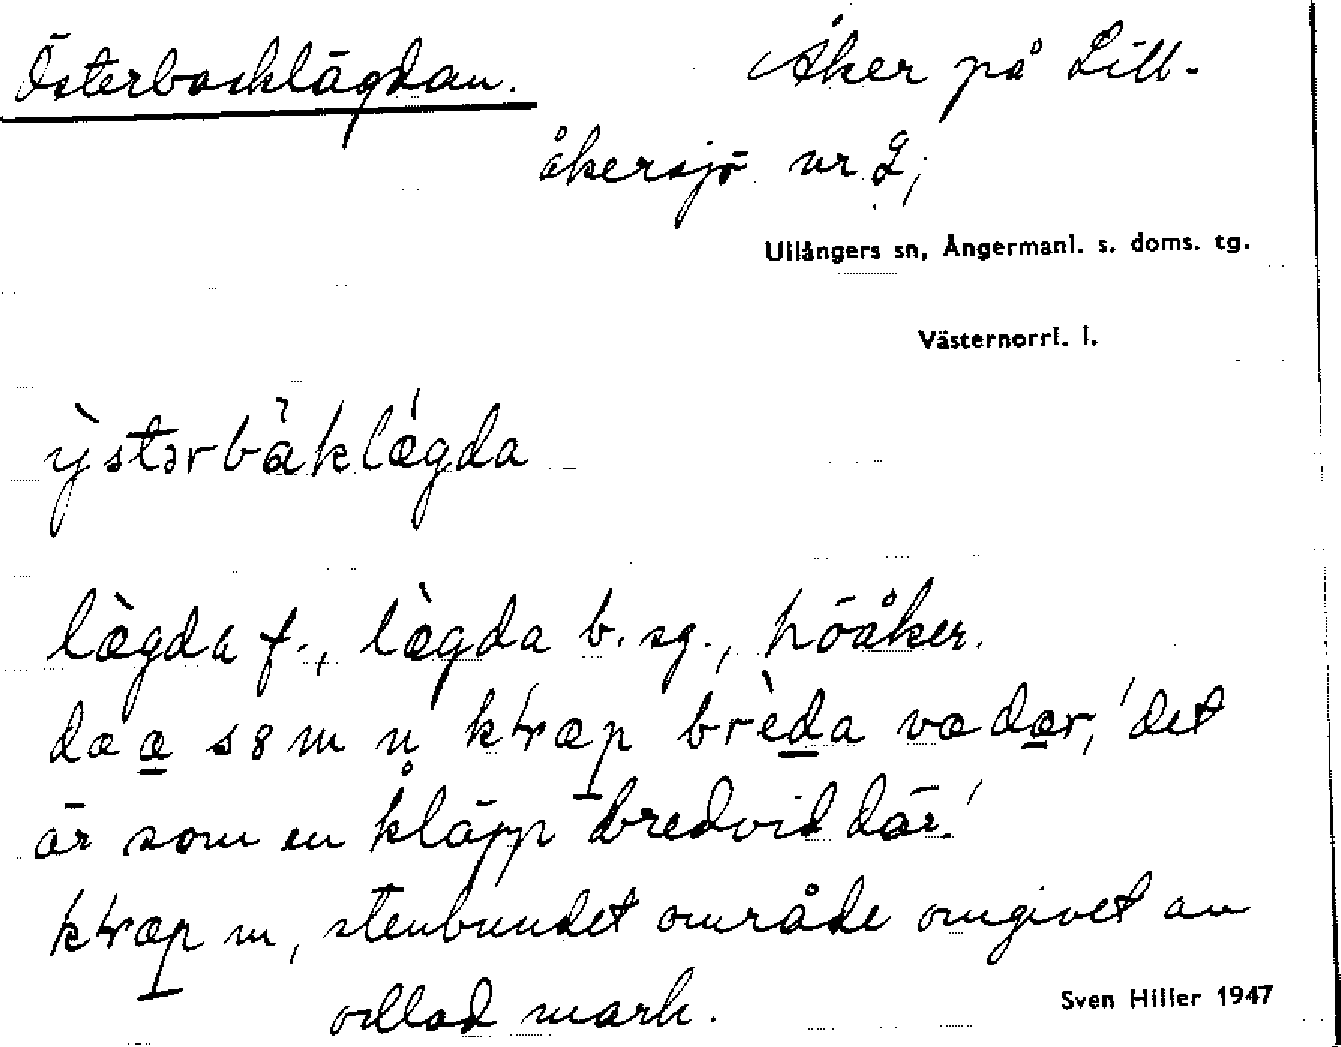 Österbacklägdan. Åker på Lill-
åkersjö nr 2;
Ullångers sn, Ångermanl. s. doms. tg.
Västernorrl. l.
ỳstərbàklǽgda
læ̀gda f., læ̀gda b. sg., höåker.
dæ æ sɜm n̥ kɽæp brèda vædær, 'det
är som en kläpp bredvid där.'
kɽæp m, stenbundet område omgivet av
odlad mark.
Sven Hiller 1947